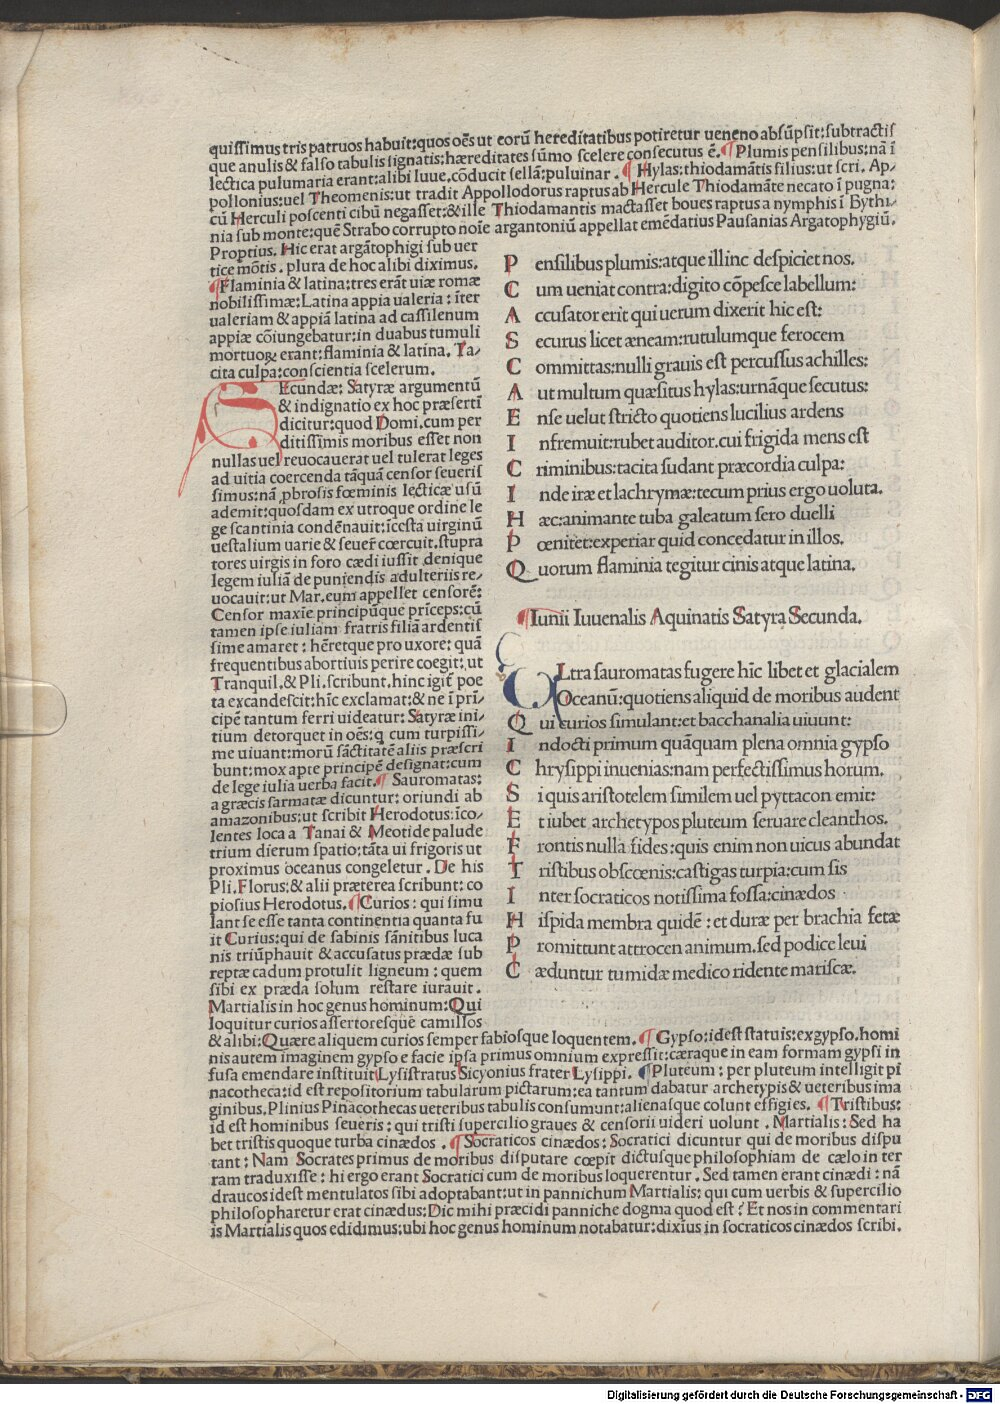 quissimus tris patruos habuit:quos oēs ut eorū hereditatibus potiretur ueneno absūpsit:subtractis
que anulis & falso tabulis signatis:hæreditates sūmo scelere consecutus ē.¶Plumis pensilibus:nā ī
lectica pulumaria erant:alibi Iuue.cōducit sellā:puluinar . ¶ Hylas:thiodamātis filius:ut scri. Ap/
pollonius:uel Theomenis:ut tradit Appollodorus raptus ab Hercule Thiodamāte necato ī pugna:
cū Herculi poscenti cibū negasset:& ille Thiodamantis mactasset boues raptus a nymphis ī Bythi/
nia sub monte:quē Strabo corrupto noīe argantoniū appellat emēdatius Pausanias Argatophygiū.
Proptius. Hic erat argātophigi sub uer
tice mōtis . plura de hoc alibi diximus.
¶Flaminia & latina:tres erāt uiæ romæ
nobilissimæ:Latina appia ualeria : īter
ualeriam & appiā latina ad cassilenum
appiæ cōiungebatur:in duabus tumuli
mortuoꝝ erant:flaminia & latina. Ta/
cita culpa:conscientia scelerum.
SEcundæ: Satyræ argumentū
& indignatio ex hoc præsertī
dicitur:quod Domi.cum per
ditissimis moribus esset non
nullas uel reuocauerat uel tulerat leges
ad uitia coercenda tāquā censor seueris
simus:nā ꝓbrosis fœminis lecticæ usū
ademit:quosdam ex utroque ordine le
ge scantinia condēnauit:īcesta uirginū
uestalium uarie & seuer̄ coercuit.stupra
tores uirgis in foro cædi iussit .denique
legem iuliā de puniendis adulteriis re/
uocauit:ut Mar.eum appellet censorē:
Censor maxīe principūque prīceps:cū
tamen ipse iuliam fratris filiā ardentis
sime amaret : hēretque pro uxore: quā
frequentibus abortiuis perire coegit:ut
Tranquil.& Pli.scribunt.hinc igit̄ poe
ta excandescit:hīc exclamat:& ne ī pri/
cipē tantum ferri uideatur: Satyræ ini/
tium detorquet in oēs:q cum turpissi/
me uiuant:morū sāctitatē aliis præscri
bunt:mox apte principē designat:cum
de lege iulia uerba facit.¶ Sauromatas:
a græcis sarmatæ dicuntur: oriundi ab
amazonibus:ut scribit Herodotus:īco/
lentes loca a Tanai & Meotide palude
trium dierum spatio:tāta ui frigoris ut
proximus oceanus congeletur . De his
Pli.Florus:& alii præterea scribunt: co
piosius Herodotus.¶Curios : qui simu
lant se esse tanta continentia quanta fu
it Curius:qui de sabinis sānitibus luca
nis triūphauit & accusatus prædæ sub
reptæ cadum protulit ligneum : quem
sibi ex præda solum restare iurauit .
Martialis in hoc genus hominum:Qui
loquitur curios assertoresque camillos
P ensilibus plumis:atque illinc despiciet nos.
C um ueniat contra:digito cōpesce labellum:
A ccusator erit qui uerum dixerit hic est:
S ecurus licet æneam:rutulumque ferocem
C ommittas:nulli grauis est percussus achilles:
A ut multum quæsitus hylas:urnāque secutus:
E nse uelut stricto quotiens lucilius ardens
I nfremuit:rubet auditor.cui frigida mens est
C riminibus:tacita sudant præcordia culpa:
I nde iræ et lachrymæ:tecum prius ergo uoluta.
H æc:animante tuba galeatum sero duelli
P œnitet:experiar quid concedatur in illos.
Q uorum flaminia tegitur cinis atque latina.
¶Iunii Iuuenalis Aquinatis Satyra Secunda.
VLtra sauromatas fugere hīc libet et glacialem
Oceanū:quotiens aliquid de moribus audent
Q ui curios simulant:et bacchanalia uiuunt:
I ndocti primum quāquam plena omnia gypso
C hrysippi inuenias:nam perfectissimus horum.
S i quis aristotelem similem uel pyttacon emit:
E t iubet archetypos pluteum seruare cleanthos.
F rontis nulla fides:quis enim non uicus abundat
T ristibus obscœnis:castigas turpia:cum sis
I nter socraticos notissima fossa:cinædos
H ispida membra quidē : et duræ per brachia setæ
P romittunt attrocen animum.sed podice leui
C æduntur tumidæ medico ridente mariscæ.
& alibi:Quære aliquem curios semper fabiosque loquentem.¶ Gypso:idest statuis:exgypso.homi
nis autem imaginem gypso e facie ipsa primus omnium expressit:cæraque in eam formam gypsi in
fusa emendare instituit Lysistratus Sicyonius frater Lysippi. ¶Pluteum : per pluteum intelligit pi
nacotheca:id est repositorium tabularum pictarum:ea tantum dabatur archetypis & ueteribus ima
ginibus.Plinius Pinacothecas ueteribus tabulis consumunt:alienasque colunt effigies. ¶Tristibus:
id est hominibus seueris : qui tristi supercilio graues & censorii uideri uolunt . Martialis: Sed ha
bet tristis quoque turba cinædos . ¶Socraticos cinædos: Socratici dicuntur qui de moribus dispu
tant : Nam Socrates primus de moribus disputare cœpit dictusque philosophiam de cælo in ter
ram traduxisse : hi ergo erant Socratici cum de moribus loquerentur . Sed tamen erant cinædi : nā
draucos idest mentulatos sibi adoptabant:ut in pannichum Martialis: qui cum uerbis & supercilio
philosopharetur erat cinædus:Dic mihi præcidi panniche dogma quod est ? Et nos in commentari
is Martialis quos edidimus:ubi hoc genus hominum notabatur:dixius in socraticos cinædos scribi.
Digitalisierung gefördert durch die Deutsche Forschungsgemeinschaft - DFG